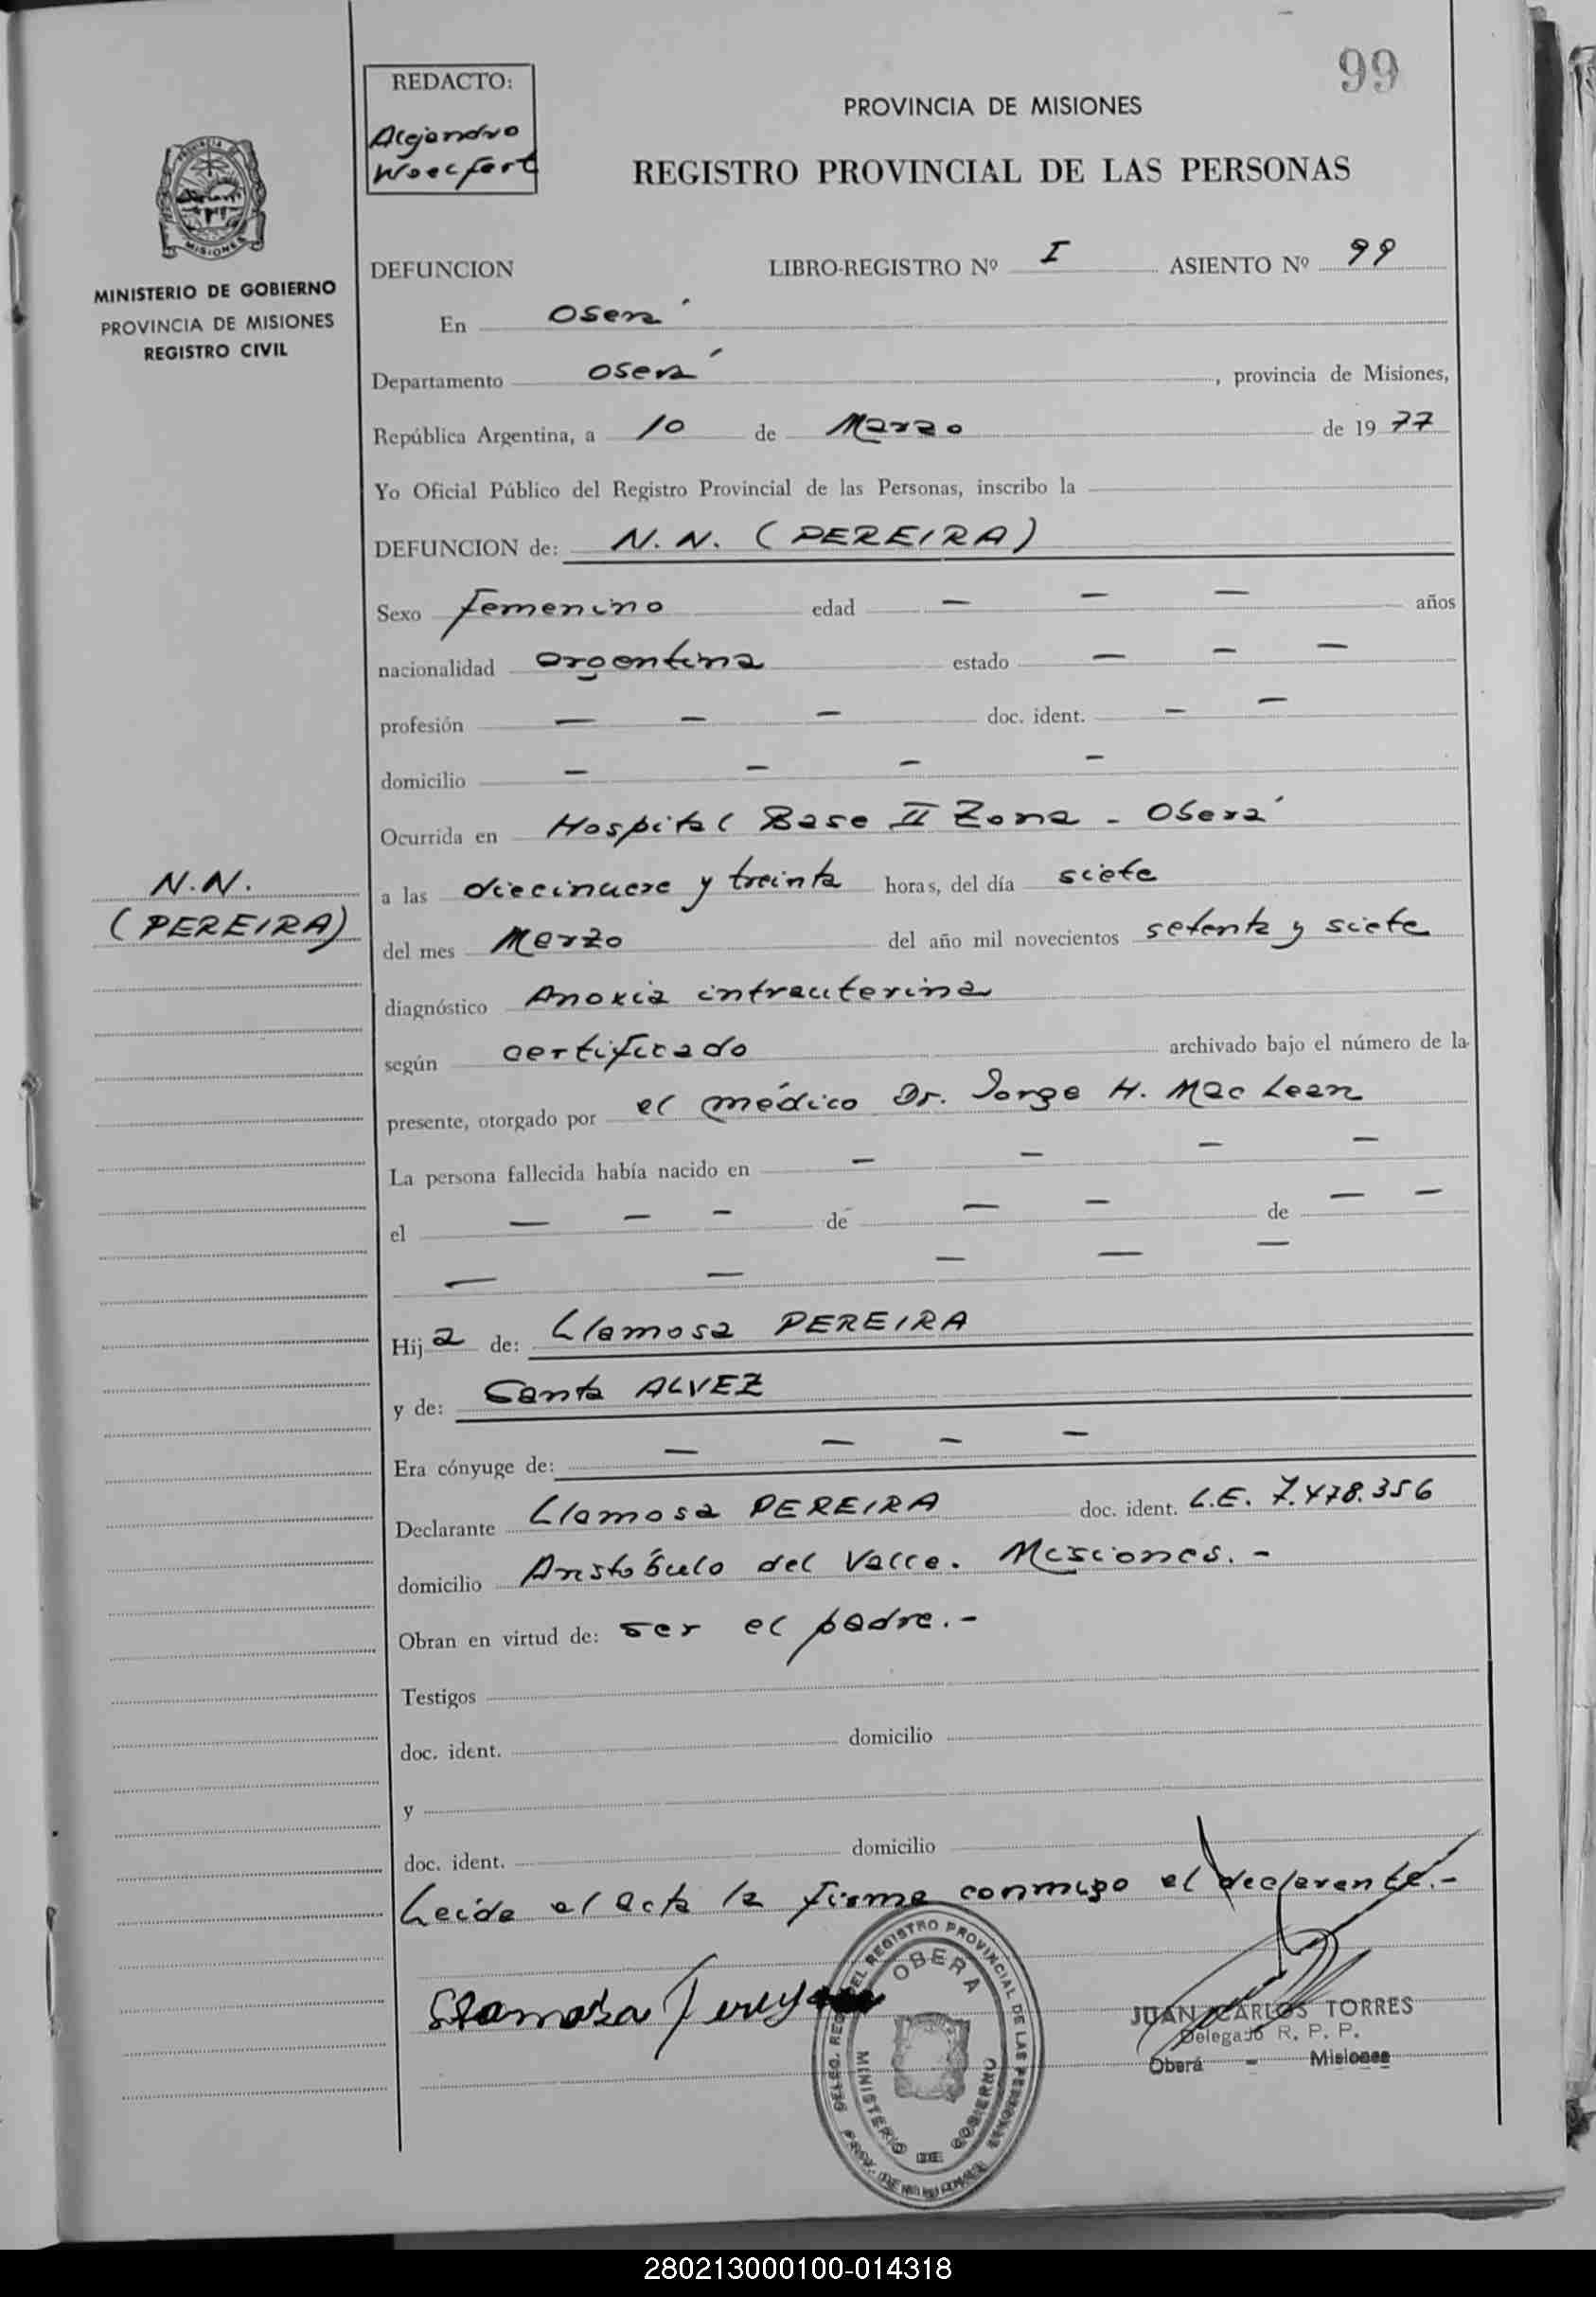 99
REDACTO:
Alejandro
Woelfert
PROVINCIA DE MISIONES
REGISTRO PROVINCIAL DE LAS PERSONAS
MISIONES
MINISTERIO DE GOBIERNO
PROVINCIA DE MISIONES
REGISTRO CIVIL
DEFUNCION LIBRO-REGISTRO Nº I ASIENTO Nº 99
En Oberá
Departamento Oberá, provincia de Misiones,
República Argentina, a 10 de Marzo de 19 77
Yo Oficial Público del Registro Provincial de las Personas, inscribo la
DEFUNCION de: N. N. (PEREIRA)
Sexo femenino edad — — — años
nacionalidad argentina estado — — —
profesión — — — doc. ident. — —
domicilio — — — —
Ocurrida en Hospital Base II Zona - Oberá
N.N.
(PEREIRA)
a las diecinueve y treinta horas, del día siete
del mes Marzo del año mil novecientos setenta y siete
diagnóstico Anoxia intrauterina
según certificado archivado bajo el número de la
presente, otorgado por el médico Dr. Jorge H. Mac Lean
La persona fallecida había nacido en — — — —
el — — — de — — de — —
— — — — —
Hija de: Llamosa PEREIRA
y de: Santa ALVEZ
Era cónyuge de: — — — —
Declarante Llamosa PEREIRA doc. ident. L.E. 7.478.356
domicilio Aristóbulo del Valle. Misiones.-
Obran en virtud de: ser el padre.-
Testigos
doc. ident. domicilio
y
doc. ident. domicilio
Leida el acta la firma conmigo el declarante.-
OBERA
MINISTERIO DE GOBIERNO
JUAN CARLOS TORRES
Delegado R. P. P.
Oberá - Misiones
280213000100-014318